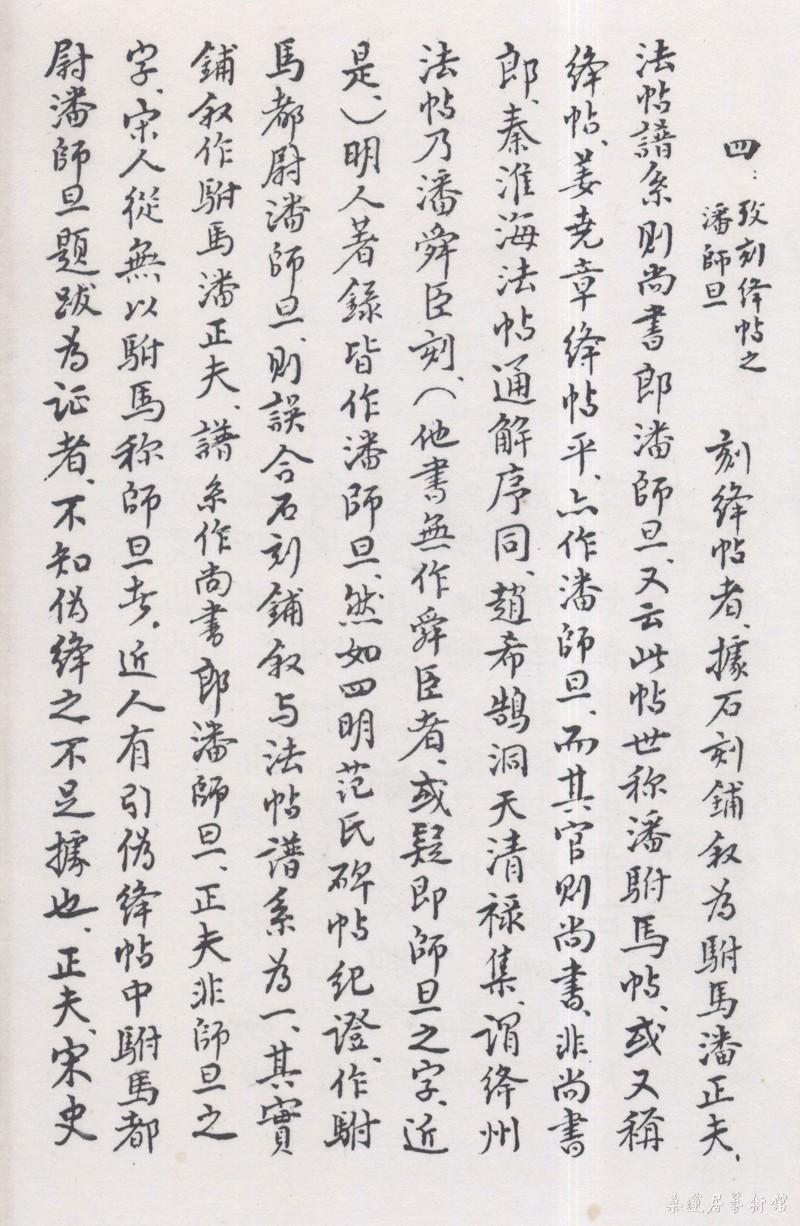 四：攷刻絳帖之
潘師旦
刻絳帖者、據石刻鋪叙為駙馬潘正夫、
法帖譜系則尚書郎潘師旦、又云此帖世称潘駙馬帖、或又稱
絳帖、姜尭章絳帖平、亦作潘師旦、而其官則尚書、非尚書
郎、秦淮海法帖通解序同、趙希鵠洞天清禄集、謂絳州
法帖乃潘舜臣刻、（他書無作舜臣者、或疑即師旦之字、近
是、）明人著錄皆作潘師旦、然如四明范氏碑帖紀證、作駙
馬都尉潘師旦、則誤合石刻鋪叙与法帖譜系為一、其實
鋪叙作駙馬潘正夫、譜系作尚書郎潘師旦、正夫非師旦之
字、宋人從無以駙馬称師旦者、近人有引偽絳帖中駙馬都
尉潘師旦題跋為证者、不知偽絳之不足據也、正夫、宋史
桑蓮居藝術館